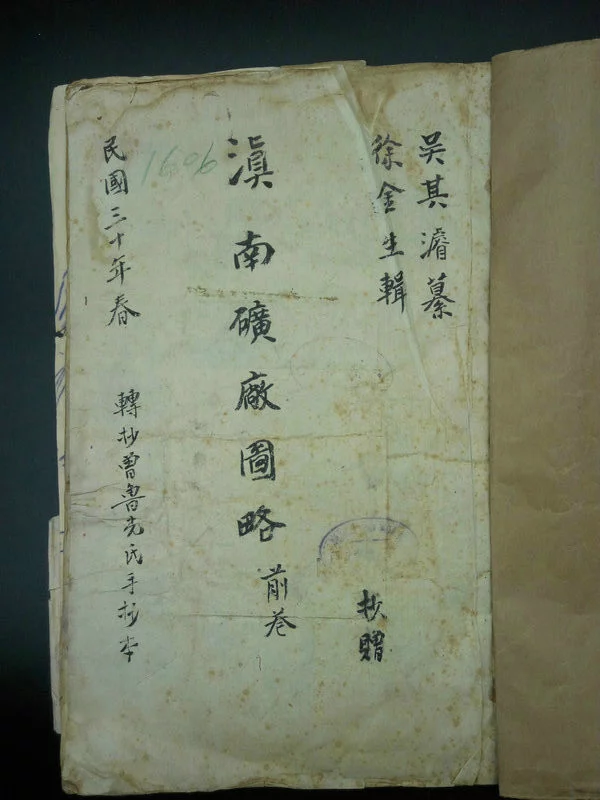 吳其濬纂
徐金生輯
抄贈
滇南礦廠圖略 前卷
1606
民國三十年春 轉抄曾魯光氏手抄本